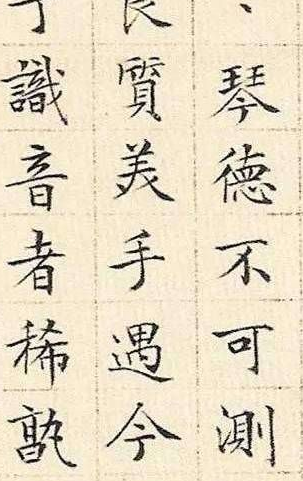 琴德不可測
良質美手遇今
識音者稀孰